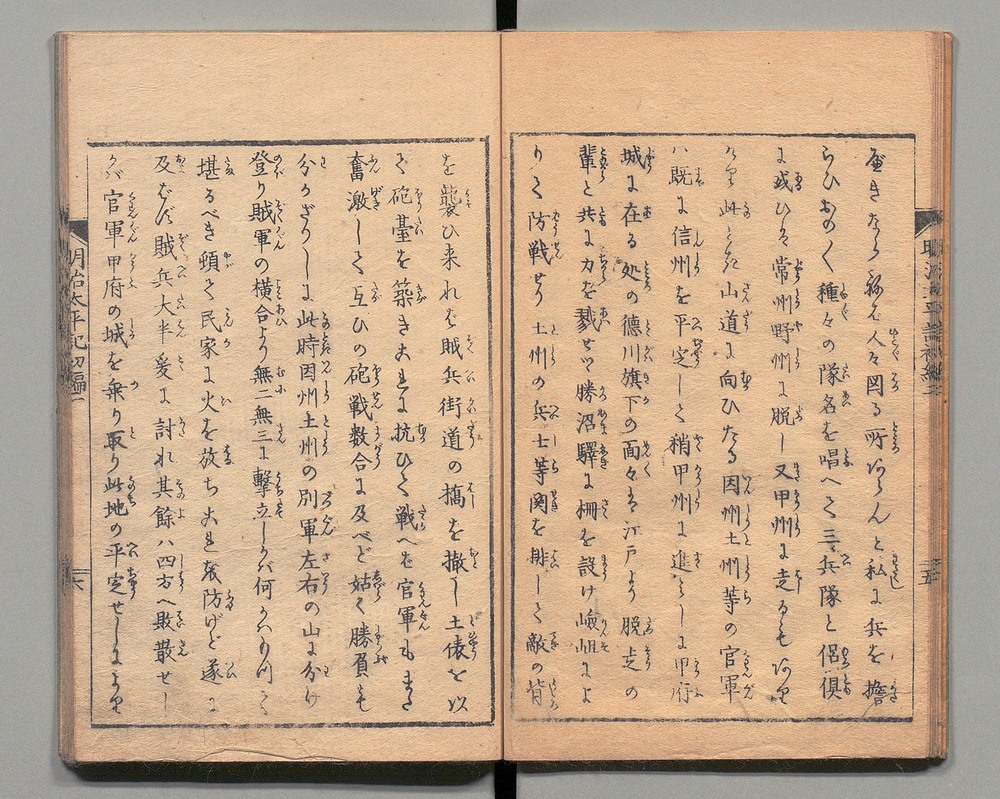 べきならねば人々図る所あらんと私に兵を擔
らひおのく種々の隊名を唱へて三兵隊と侶倶
に或ひは常州野州に脱し又甲州に走るもあり
此とき山道に向ひたる因州土州等の官軍
ハ既に信州を平定して稍甲州に進みしに甲府
城に在る処の徳川旗下の面々は江戸より脱走の
輩と共に力を戮せ勝沼驛に柵を設け嶮岨によ
りて防戦せり土州の兵士等関を排して敵の背
を襲ひ来れば賊兵街道の橋を撤し土俵を以
て砲臺を築きこれに抗ひて戦へば官軍もまた
奮激して互ひの砲戦数合に及べど姑く勝負も
分かざりしに此時因州土州の別軍左右の山に分け
登り賊軍の横合より無二無三に撃立しかバ何かハもつて
堪るべき頓て民家に火を放ちこれを防げど遂に
及ばず賊兵大半爰に討れ其餘ハ四方へ敗散せし
かバ官軍甲府の城を乗り取り此地の平定せしにより
明治太平記初編二
五
明治太平記初編二
六